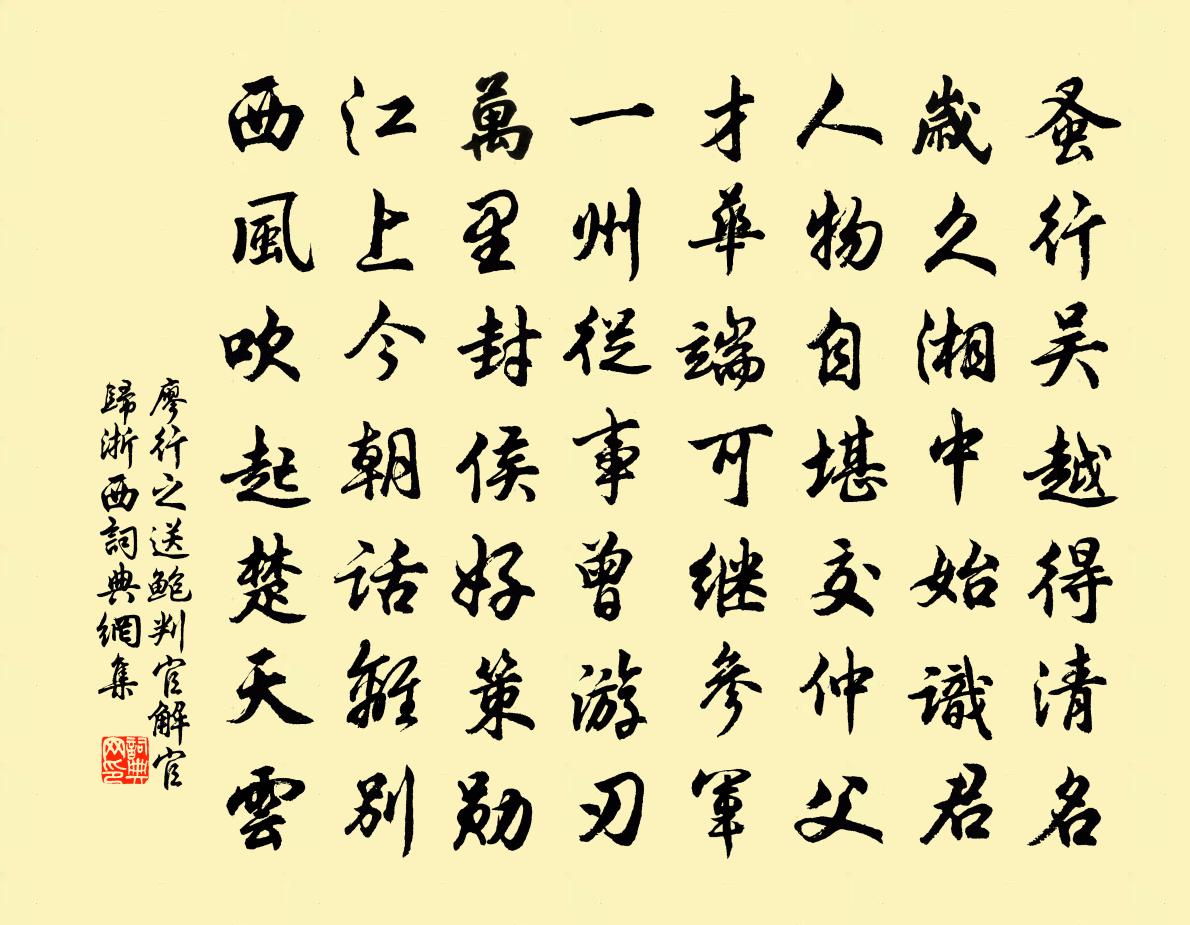 蚤行吴越得清名
歲久湘中始識君
人物自堪交仲父
才華端可继參軍
一州從事曾游刃
萬里封侯好策勋
江上今朝話離別
西風吹起楚天雲
廖行之送鮑判官解官
歸浙西詞典網集
詞典
网印